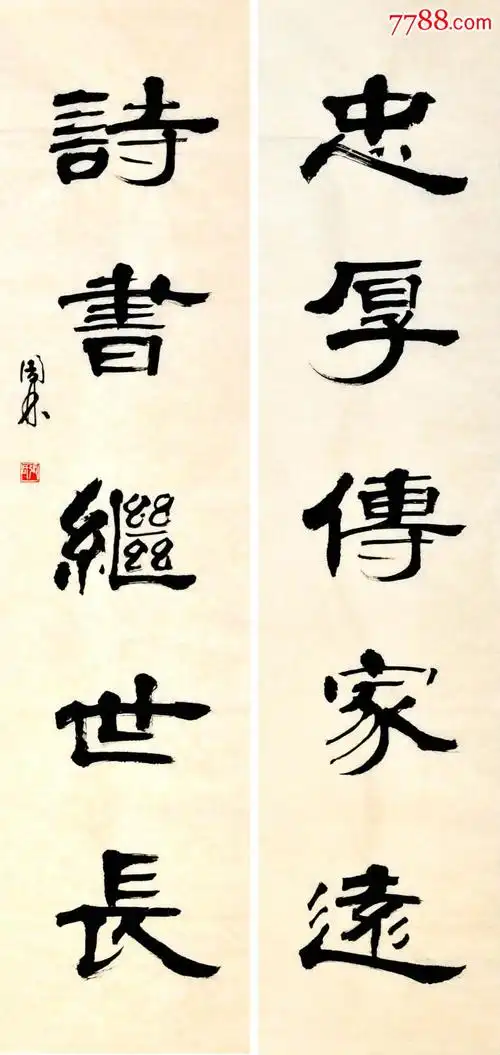 7788.com
忠厚傳家遠
詩書繼世長